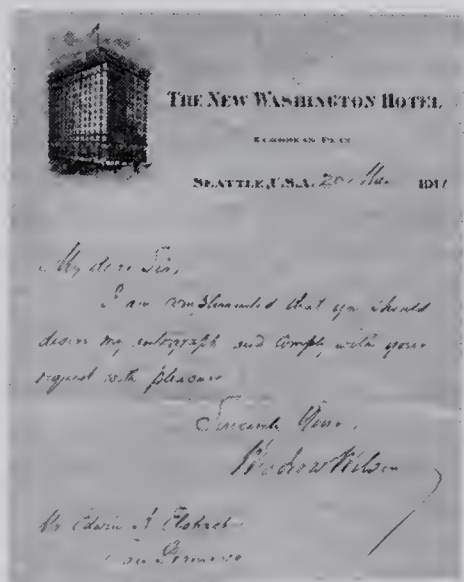 THE NEW WASHINGTON HOTEL
EUROPEAN PLAN
SEATTLE, U.S.A. 20 1911
My dear Sir,
I am complimented that you should
desire my autograph and comply with your
request with pleasure
Sincerely Yours,
Woodrow Wilson
Mr Edwin
San Francisco